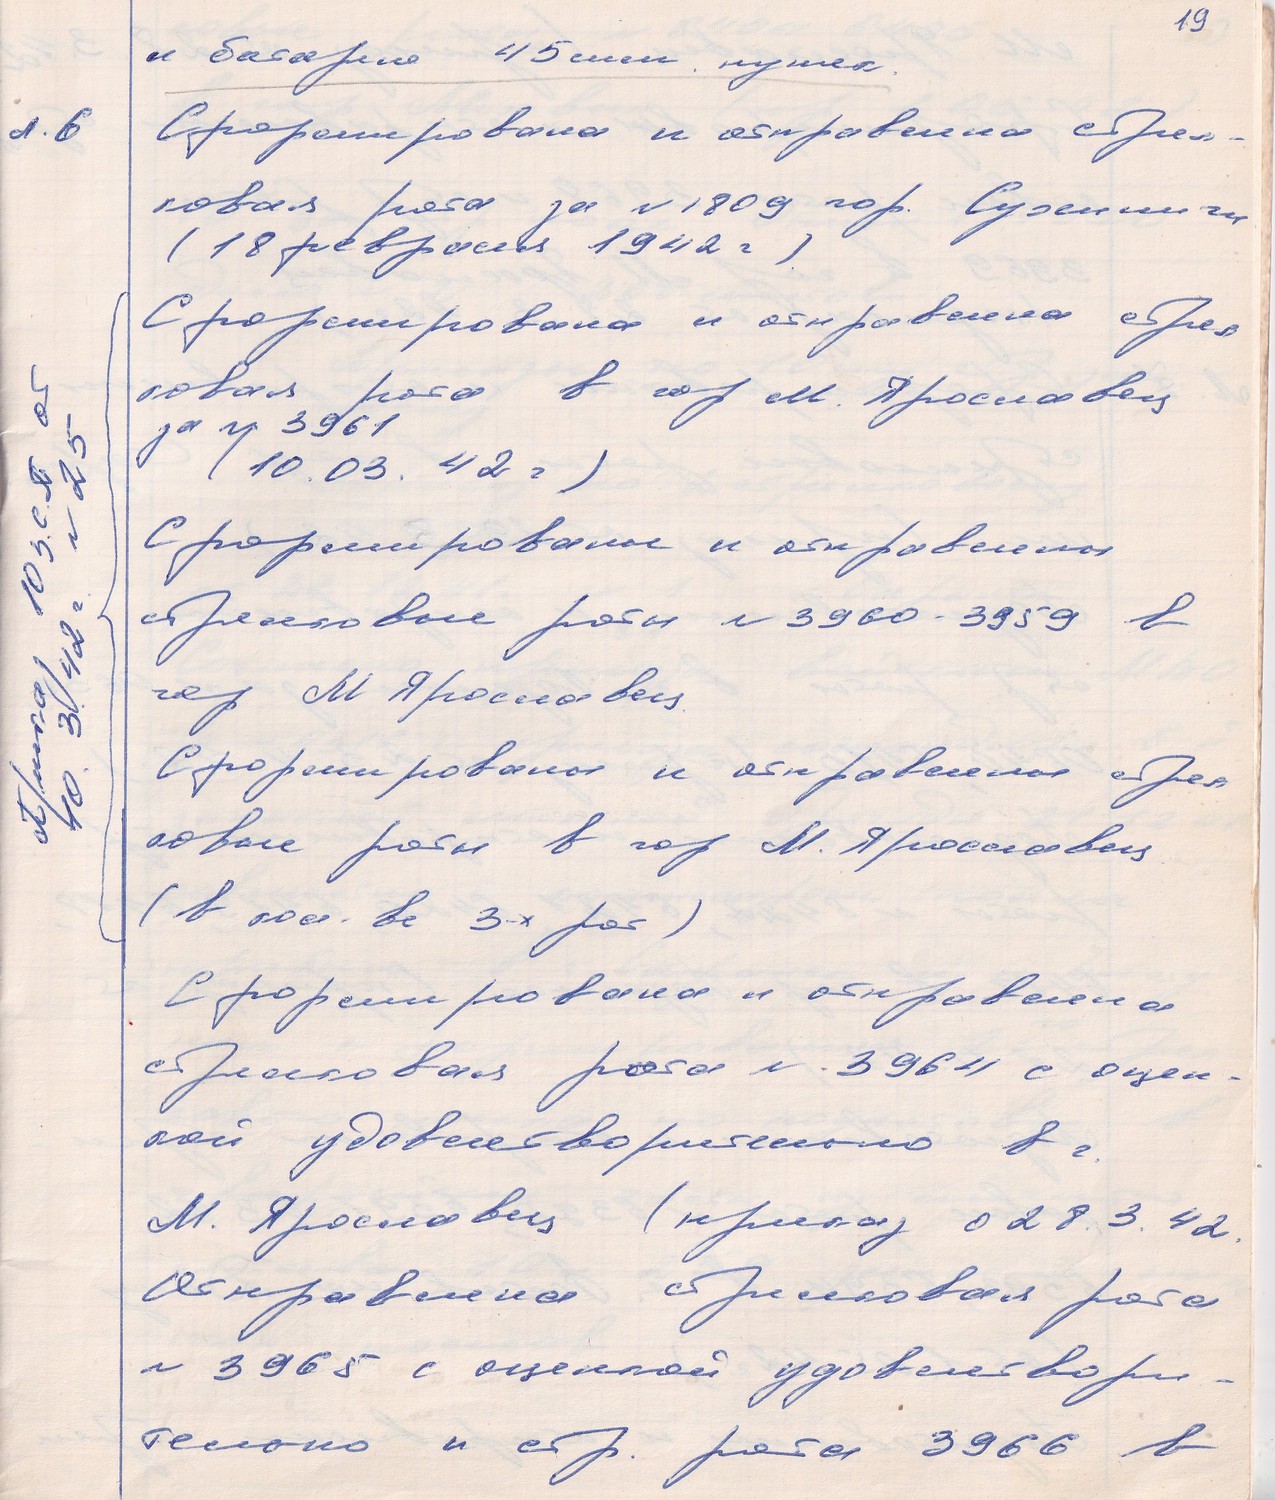 19
и батарею 45 мм. пушек.
л. 6
Сформирована и отправлена стрел-
ковая рота за № 1809 гор. Сухиничи
(18 февраля 1942 г)
Сформирована и отправлена стрел
ковая рота в гор М. Ярославец
за № 3961
(10.03.42 г)
Сформированы и отправлены
стрелковые роты № 3960-3959 в
гор М Ярославец
Сформированы и отправлены стрел
ковые роты в гор М. Ярославец
(в кол-ве 3-х рот)
Приказ 10 з.с.п от
10.3.42 г. № 25
Сформирована и отправлена
стрелковая рота №. 3964 с оцен-
кой удовлетворительно в г.
М. Ярославец (приказ о 28.3.42.
Отправлена стрелковая рота
№ 3965 с оценкой удовлетвори-
тельно и стр. рота 3966 в